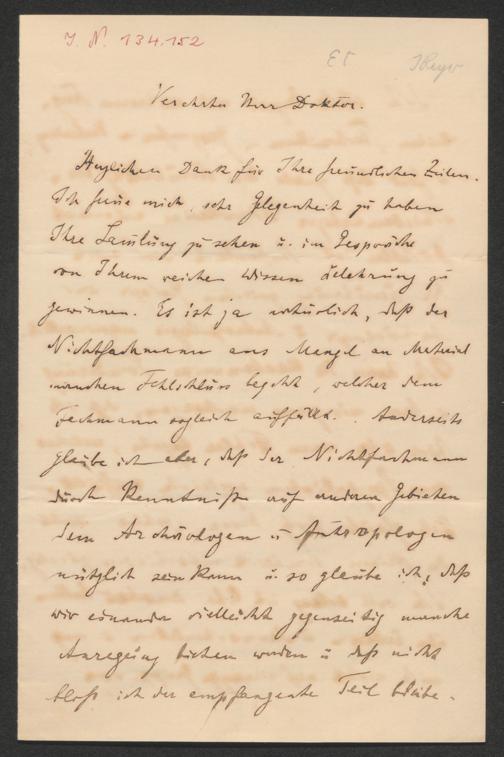 I. N. 134.152
Verehrter Herr Doktor.
Herzlichen Dank für Ihre freundlichen Zeilen.
Ich freue mich, sehr Gelegenheit zu haben
Ihre Samlung zu sehen u. im Gespräche
von Ihrem reichen Wissen Belehrung zu
gewinnen. Es ist ja natürlich, daß der
Nichtfachmann aus Mangel an Material
manchen Fehlschluss begeht, welcher dem
Fachmann sogleich auffällt. Anderseits
glaube ich aber, daß der Nichtfachmann
durch Kenntniße auf anderen Gebieten
dem Archäologen u Antropologen
nützlich sein kann u. so glaube ich, daß
wir einander vielleicht gegenseitig manche
Anregung bieten werden u daß nicht
bloß ich der empfangende Teil bleibe.